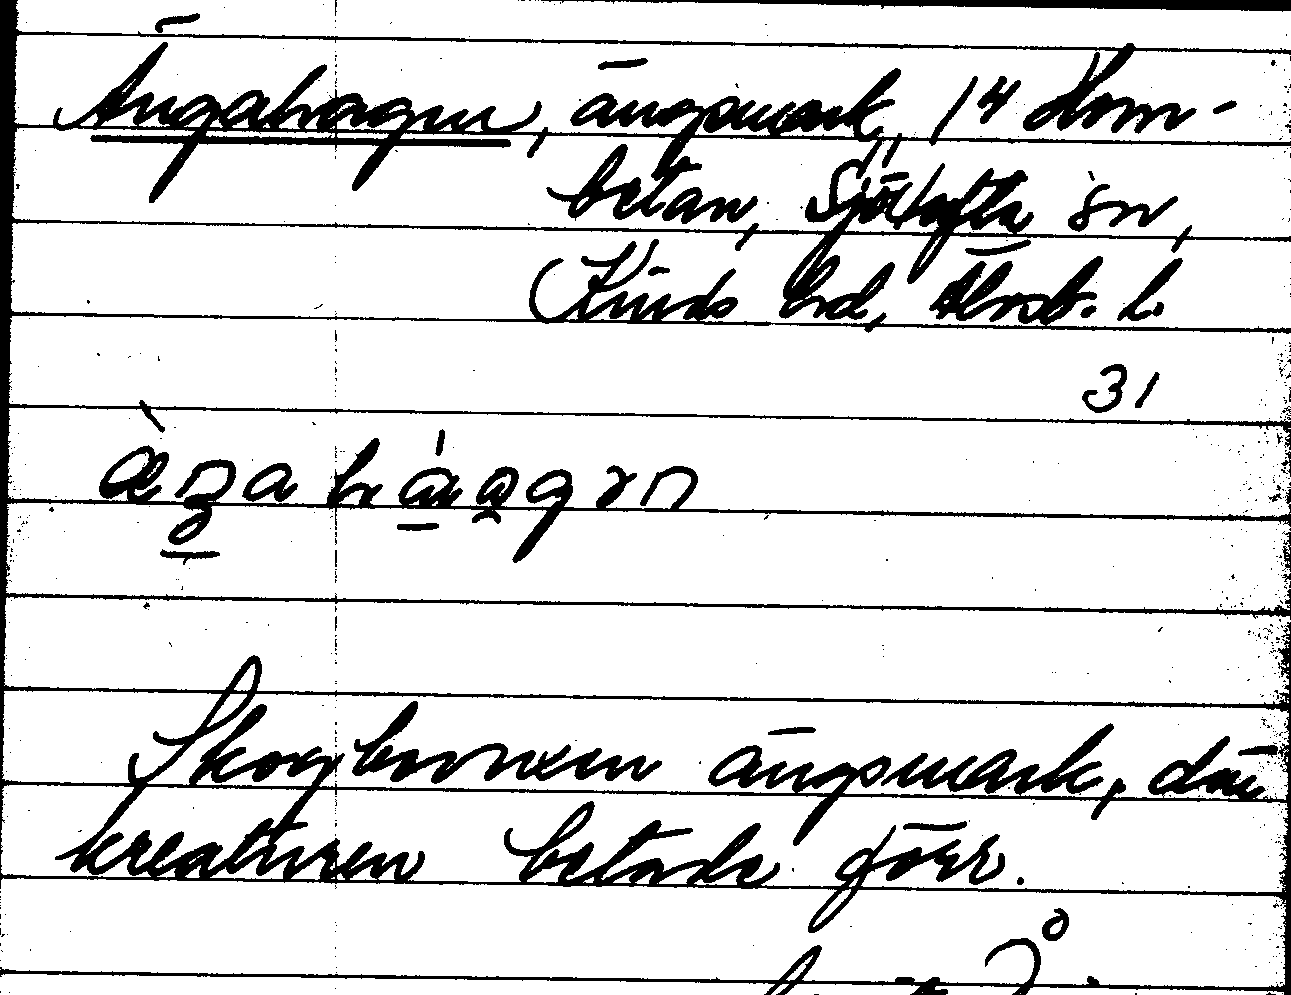 Ängahagen, ängsmark, 14 Hom-
betan, Sjötofta sn,
Kinds hd, Älvsb. l.
31
Skogbevuxen ängsmark, där
kreaturen betade förr.